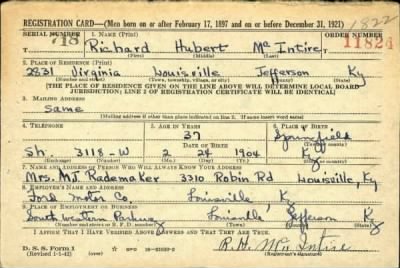 REGISTRATION CARD—(Men born on or after February 17, 1897 and on or before December 31, 1921) 1822
SERIAL NUMBER 1. NAME (Print) ORDER NUMBER
718 Richard Hubert McIntire 11824
(First) (Middle) (Last)
2. PLACE OF RESIDENCE (Print)
2831 Virginia Louisville Jefferson Ky
(Number and street) (Town, township, village, or city) (County) (State)
[THE PLACE OF RESIDENCE GIVEN ON THE LINE ABOVE WILL DETERMINE LOCAL BOARD
JURISDICTION; LINE 2 OF REGISTRATION CERTIFICATE WILL BE IDENTICAL]
3. MAILING ADDRESS
Same
[Mailing address if other than place indicated on line 2. If same insert word same]
4. TELEPHONE 5. AGE IN YEARS 6. PLACE OF BIRTH
37 Springfield
DATE OF BIRTH (Town or county)
Sh. 3118-W 2 24 1904 Ky
(Exchange) (Number) (Mo.) (Day) (Yr.) (State or country)
7. NAME AND ADDRESS OF PERSON WHO WILL ALWAYS KNOW YOUR ADDRESS
Mrs. M.J. Rademaker 3310 Robin Rd Louisville, Ky
8. EMPLOYER'S NAME AND ADDRESS
Ford Motor Co. Louisville, Ky
9. PLACE OF EMPLOYMENT OR BUSINESS
South western Parkway Louisville Jefferson Ky
(Number and street or R. F. D. number) (Town) (County) (State)
I AFFIRM THAT I HAVE VERIFIED ABOVE ANSWERS AND THAT THEY ARE TRUE.
D. S. S. Form 1
(Revised 1-1-42) (over)
R. H. McIntire
(Registrant's signature)